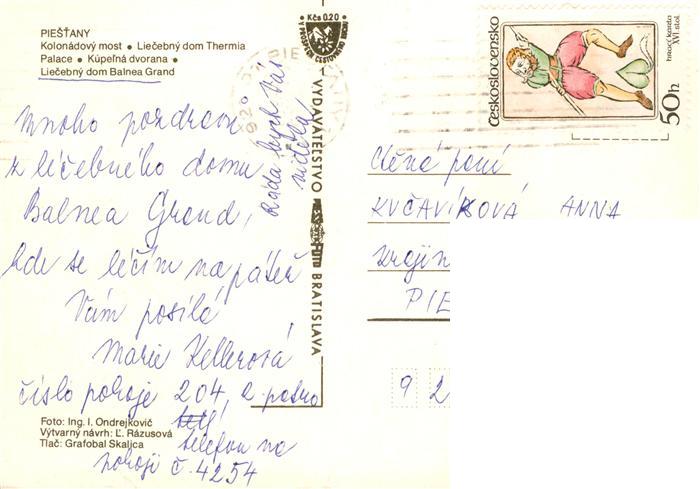 PIEŠŤANY
Kolonádový most • Liečebný dom Thermia
Palace • Kúpeľná dvorana •
Liečebný dom Balnea Grand
Mnoho pozdravů
z léčebného domu
Balnea Grand,
kde se léčím na páteř
Vám posílá
Marie Kellerová
číslo pokoje 204, 2. patro
telefon na
pokoji č. 4254
Ráda bych Vás
viděla,
Foto: Ing. I. Ondrejkovič
Výtvarný návrh: Ľ. Rázusová
Tlač: Grafobal Skalica
Kčs 0,20
V PROSPECH CESTOVNÉHO RUCHU
VYDAVATEĽSTVO
BRATISLAVA
921
Československo
hrací karta
XVI. stol.
50h
Ctěná paní
KUČAVÍKOVÁ ANNA
PIE
9 2